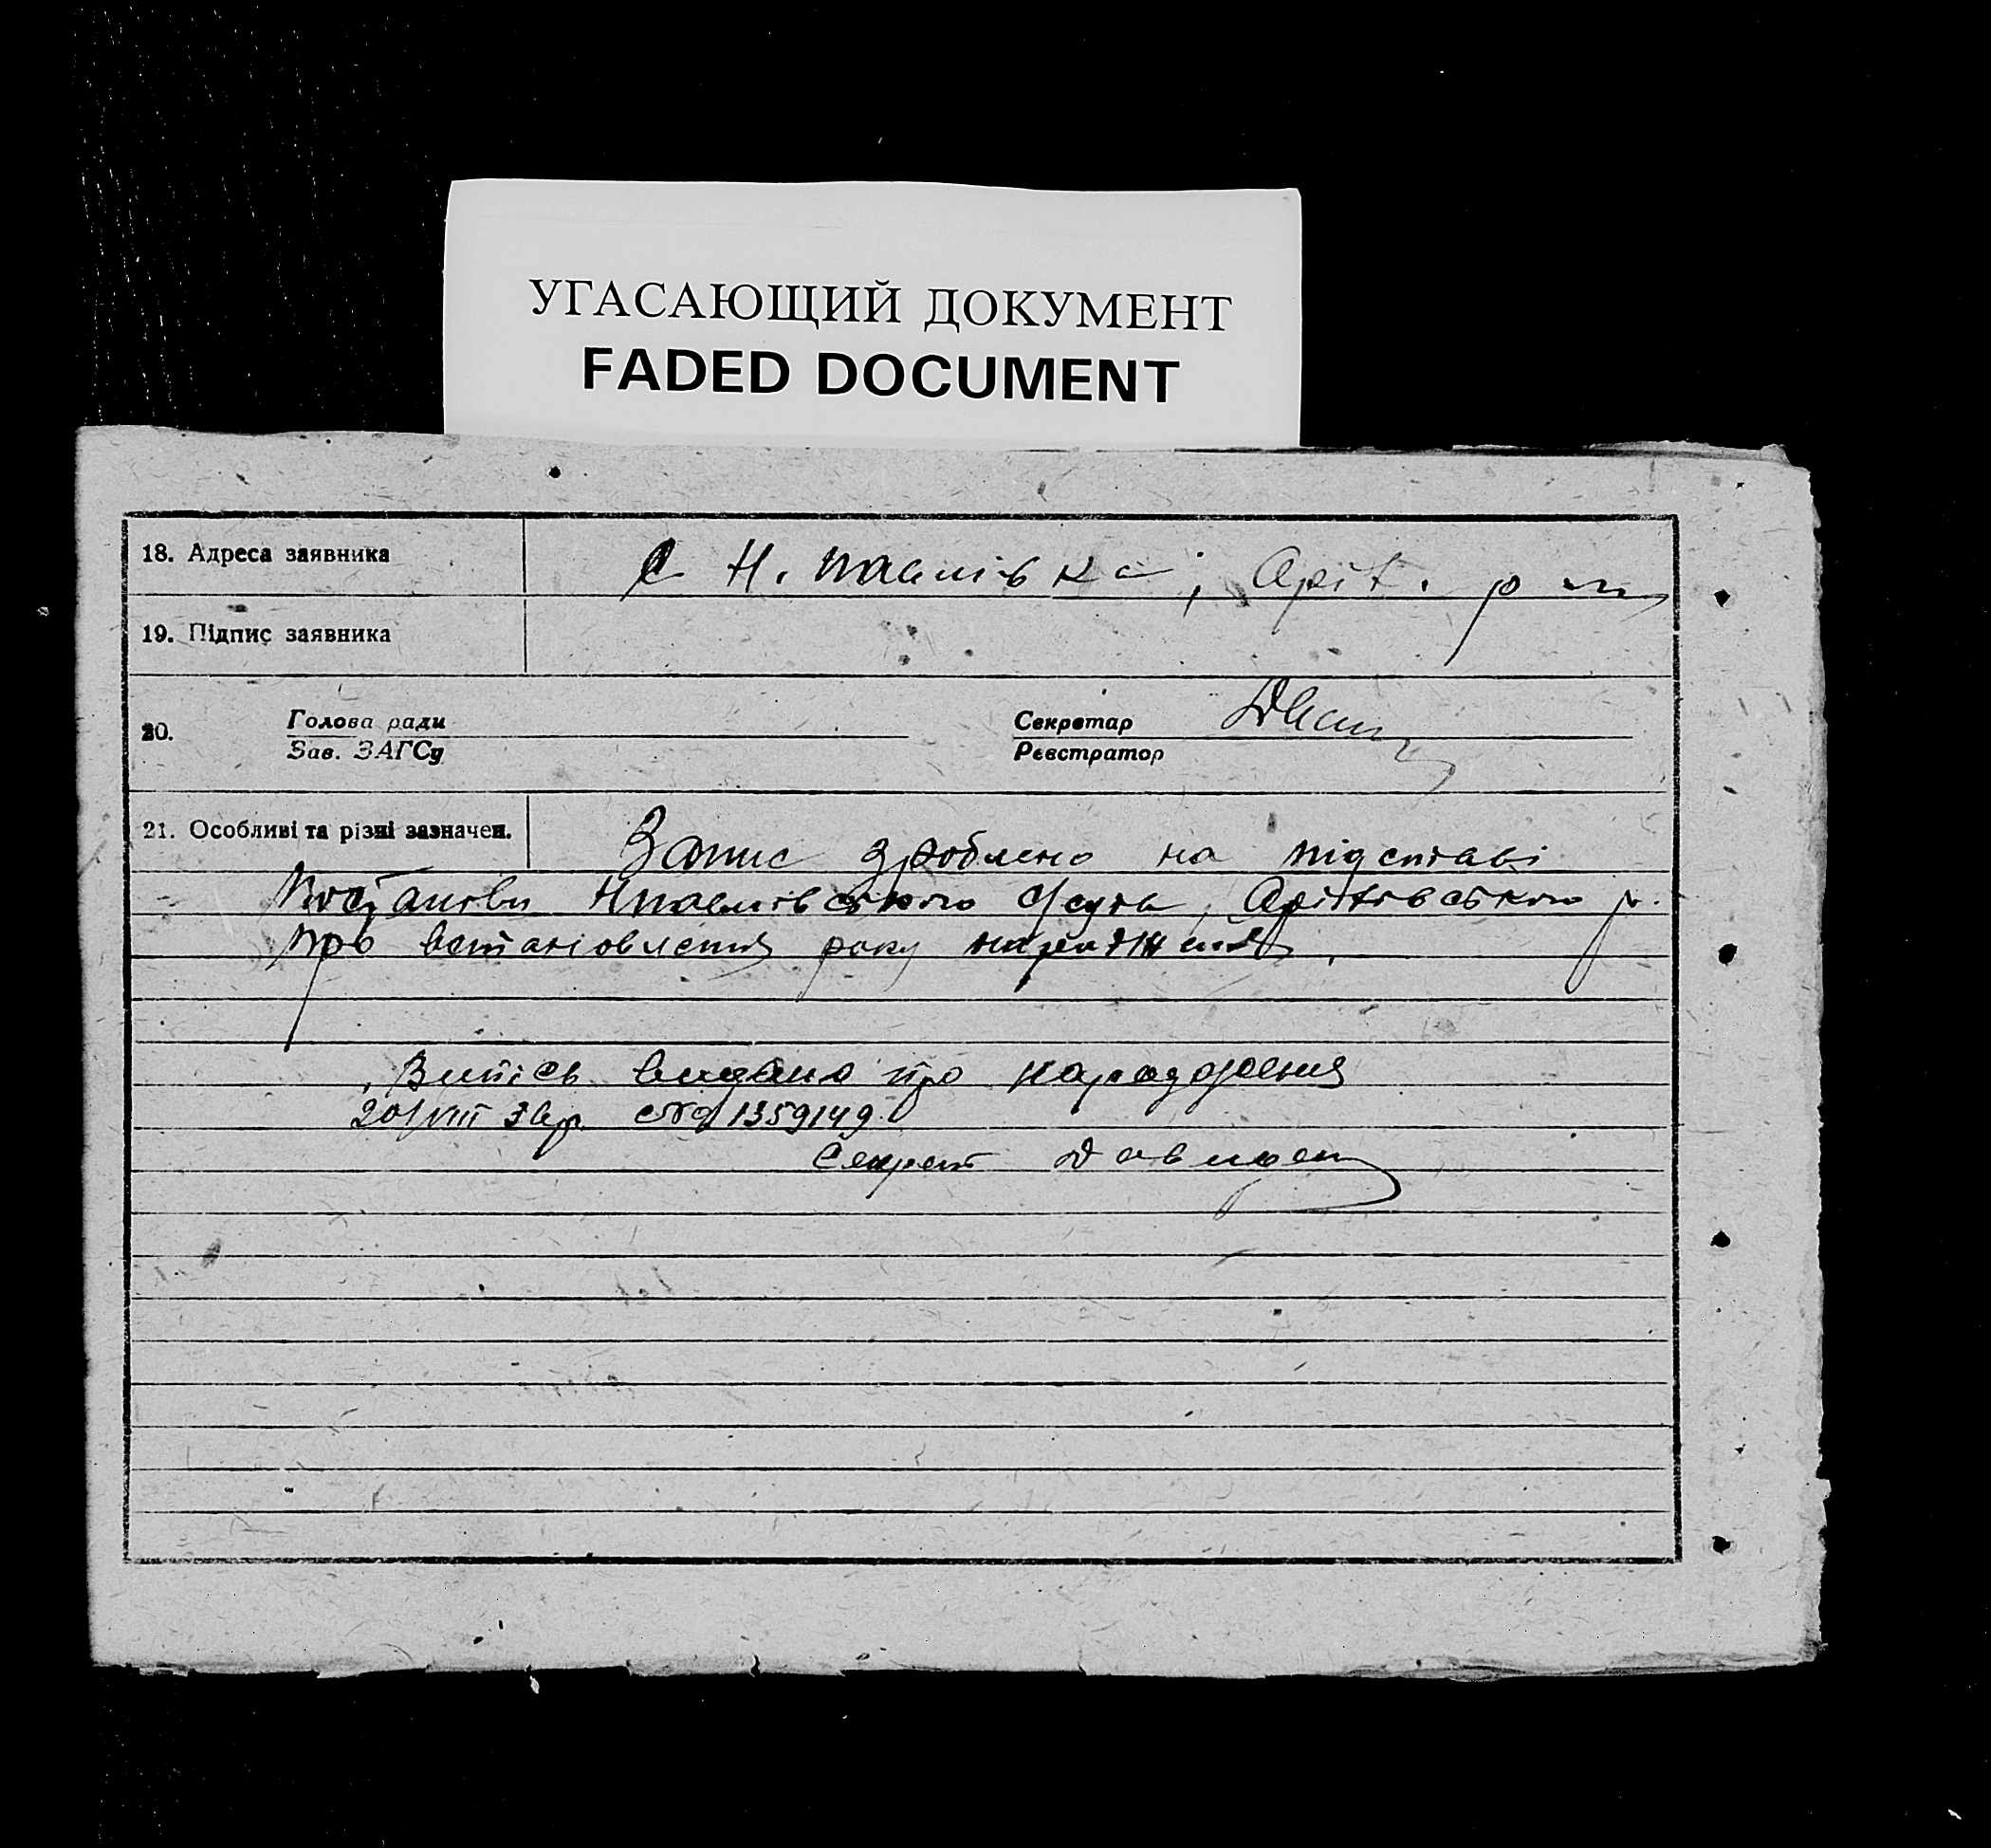 УГАСАЮЩИЙ ДОКУМЕНТ
FADED DOCUMENT
18. Адреса заявника С Н. Павлівка, Аріт. р
19. Підпис заявника
20. Голова ради Секретар
Зав. ЗАГСу Реєстратор
21. Особливі та різні зазначен. Запис зроблено на підставі
Постанови Нпавлівського, р.
про встановлення року народження.
Випісь видано про народження
20/VIII 38р. №1359149
Секрет Давиден